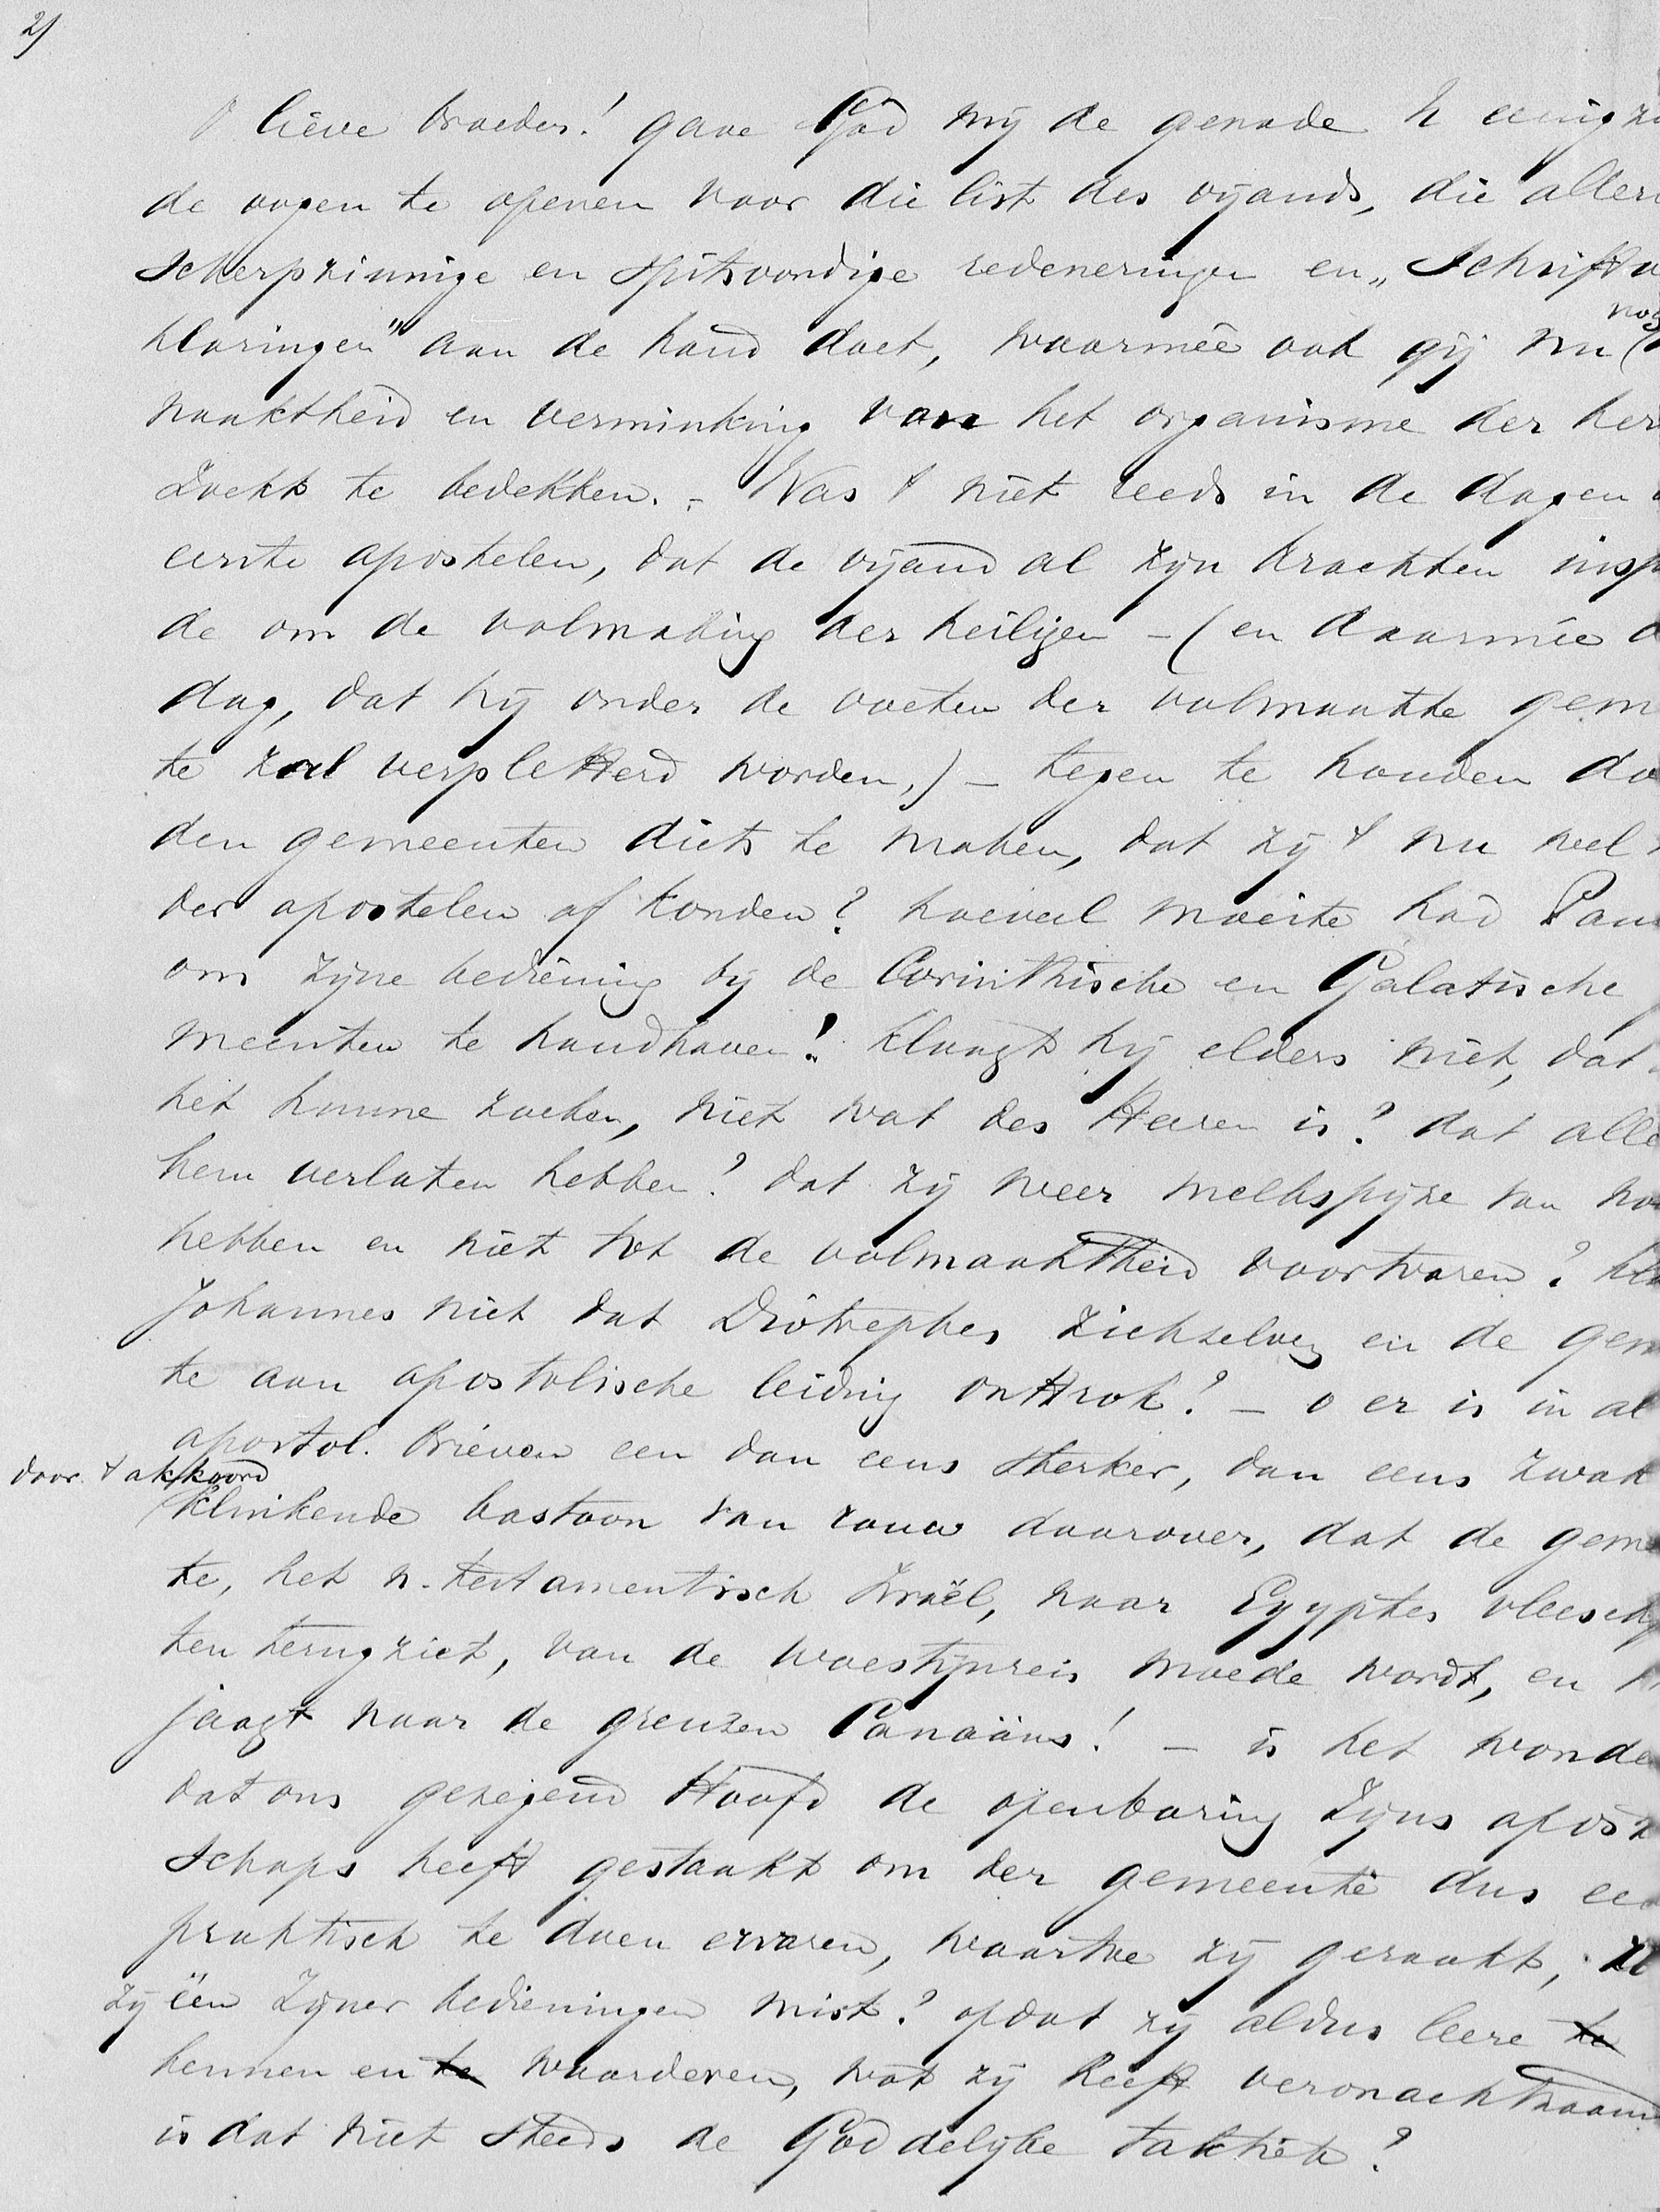 2)
O lieve broeder! gave God mij de genade U eenigzi
de oogen te openen voor die list des vijands, die aller
scherpzinnige en spitsvondige redeneringen en „Schriftv
klaringen" aan de hand doet, waarmeê ook gij nu
nog
naaktheid en verminking van het organisme der ker
zoekt te bedekken. - Was 't niet reeds in de dagen
eerste apostelen, dat de vijand al zijn krachten insp
de om de volmaking der heiligen - (en daarmeê d
dag, dat hij onder de voeten der volmaakte gem
te zal verpletterd worden,) - tegen te houden do
den gemeenten diets te maken, dat zij 't nu wel
der apostelen af konden? hoeveel moeite had Pau
om zijne bediening bij de Corinthische en Galatische
meenten te handhaven! klaagt hij elders niet, dat
het hunne zoeken, niet wat des Heeren is? dat alle
hem verlaten hebben? dat zij weer melkspijze van no
hebben en niet tot de volmaaktheid voortvaren? kla
Johannes niet dat Diotrephes zichzelven en de gem
te aan apostolische leiding onttrok? - o er is in al
apostol. brieven een dan eens sterker, dan eens zwak
door 't akkoord
klinkende bastoon van rouw daarover, dat de geme
te, het n. testamentisch Israël, naar Egyptes vleesch
ten terugziet, van de woestijnreis moede wordt, en
jaagt naar de grenzen Canaäns! - is het wonde
dat ons gezegend Hoofd de openbaring Zijns apost
schaps heeft gestaakt om der gemeente dus ee
praktisch te doen ervaren, waartoe zij geraakt,
zij één Zijner bedieningen mist? opdat zij aldus leere te
kennen en te waarderen, wat zij heeft veronachtzaamd
is dat niet steeds de Goddelijke taktiek?